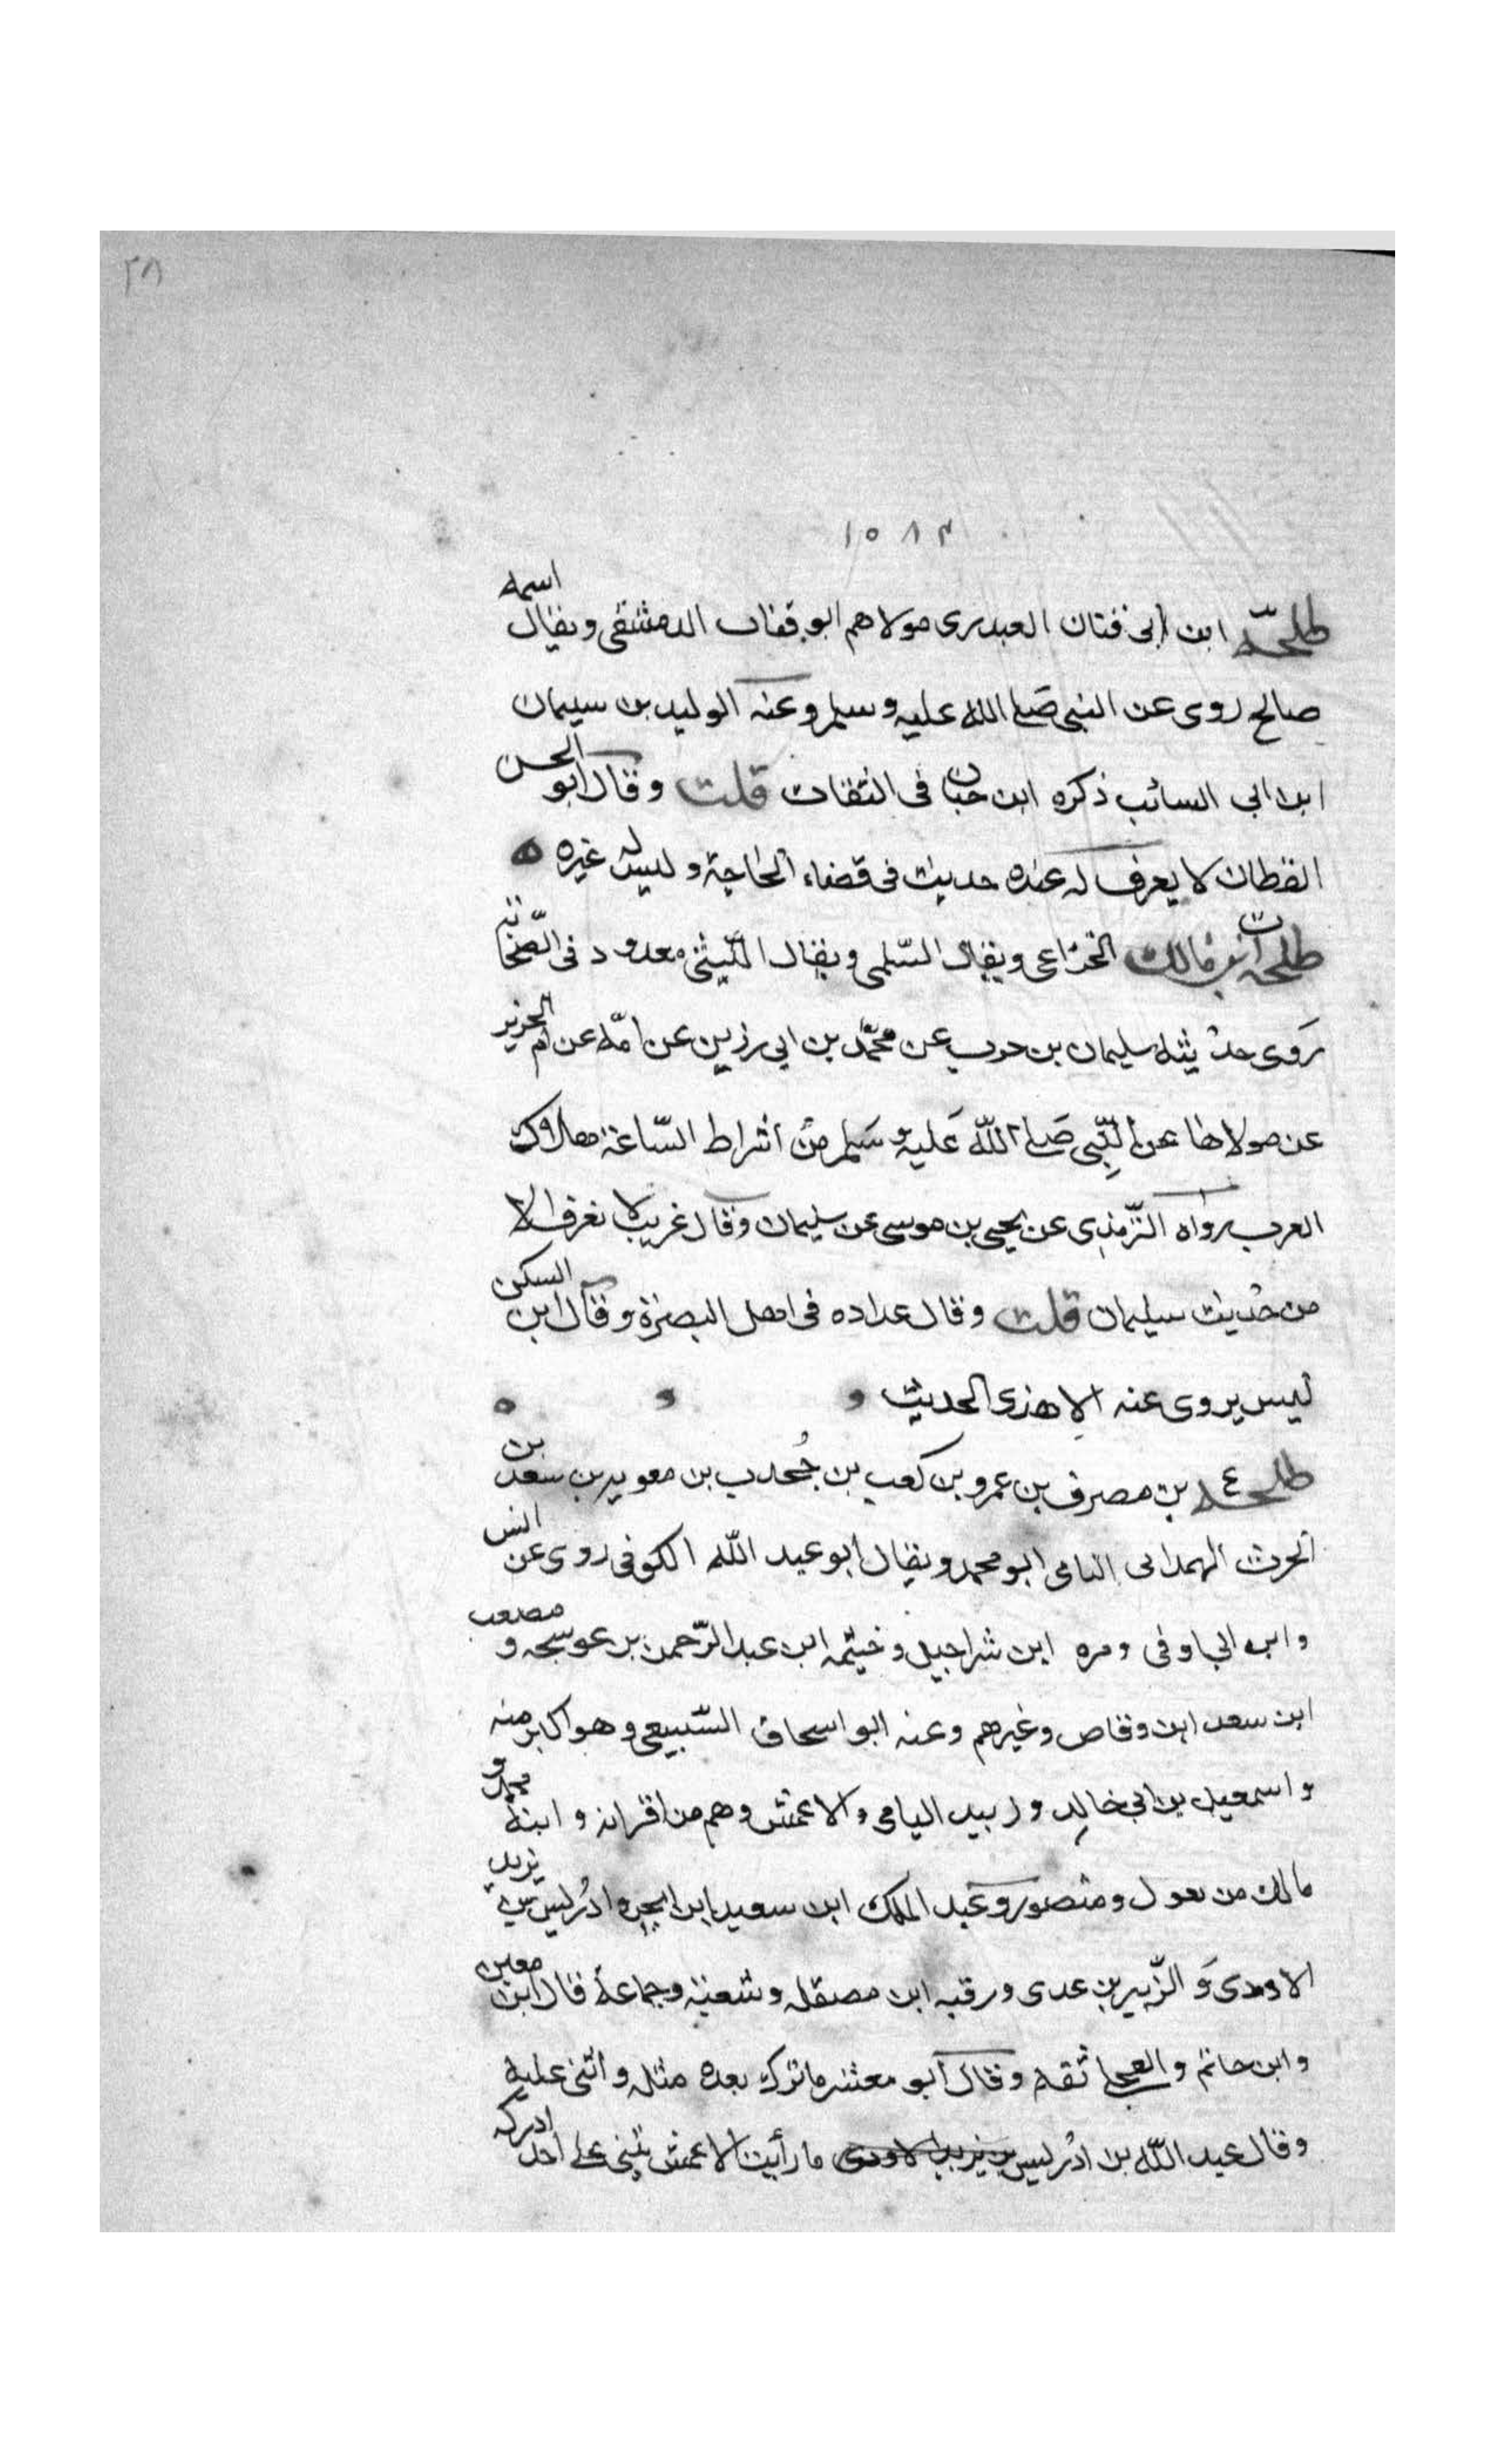 ٢٨
١٥٨٣
طلحة ابن ابى فتان العبدرى مولاهم ابو قفاف الدمشقى ويقال اسمه
صالح روى عن النبي صلى الله عليه وسلم وعنه الوليد بن سيمان
ابن ابي السائب ذكره ابن حبان فى الثقات قلت وقال ابو الحسن
القطان لا يعرف له عنده حديث فى قضاء الحاجة وليس له غيره
طلحة بن مالك الخزاعى ويقال السّلمى ويقال اللّيثى معدود فى الصّحابة
روى حديثه سليمان بن حرب عن محمّد بن ابى رزين عن امّه عن ام الحرير
عن مولاها عن النّبى صلى اللّه عليه وسلم من أشراط السّاعة هلاك
العرب رواه التّرمذى عن يحيى بن موسى عن سليمان وقال غريب لا نعرفه الا
من حديث سليمان قلت وقال عداده فى اهل البصرة وقال ابن السكن
ليس يروى عنه الا هذى الحديث
طلحة ع بن مصرف بن عمرو بن كعب بن جُحدب بن معويه بن سعد بن
الحرث الهمدانى اليامى ابو محمد ويقال ابو عبد اللّه الكوفى روى عن انس
وابن ابي اوفى ومره ابن شراحيل وخيثمه ابن عبد الرّحمن بن عوسجه و مصعب
ابن سعد ابن وقاص وغيرهم وعنه ابو اسحاق السّبيعى وهو اكابر منه
واسمعيل بن ابى خالد وزبيد اليامى والاعمش وهم من اقرانه وابنه محمد و
مالك من مغول ومنصور وعبد الملك ابن سعيد ابن ابجر وادريس بن يزيد
الاودى و الزّبير بن عدى ورقبه ابن مصقله وشعبة وجماعة قال ابن معين
وابن حاتم والعجلى ثقه وقال ابو معشر ما ترك بعده مثله واثنى عليه
وقال عبد اللّه بن ادريس بن يزيد الاودى ما رأيت الاعمش يثنى على احد ادركه